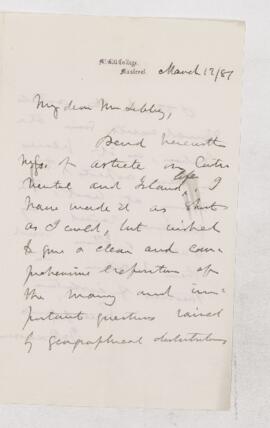 McGill College,
Montreal.
March 12/87
My dear Mr Libbey,
Send herewith
MSS. of article on Conti
nental and Island life. I
have made it as short
as I could, but wished
to give a clear and com-
prehensive exposition of
the many and im-
portant questions raised
by geographical distribution